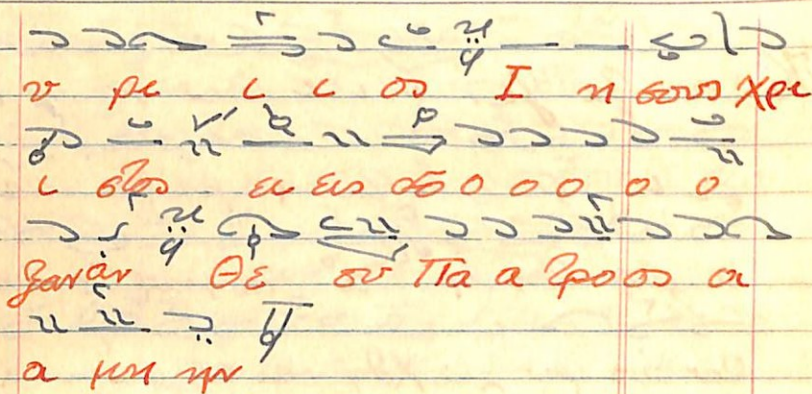 υ ρι ι ι ος Ι η σους Χρι
ι στος εις εις δο ο ο ο ο ο
ξαν αν Θε ου Πα α τρο ος α
α μη ην